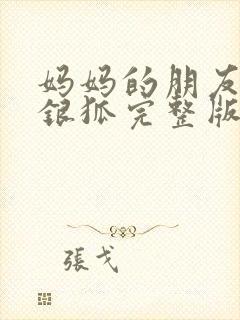 妈妈的朋友
銀狐完整版
張戈